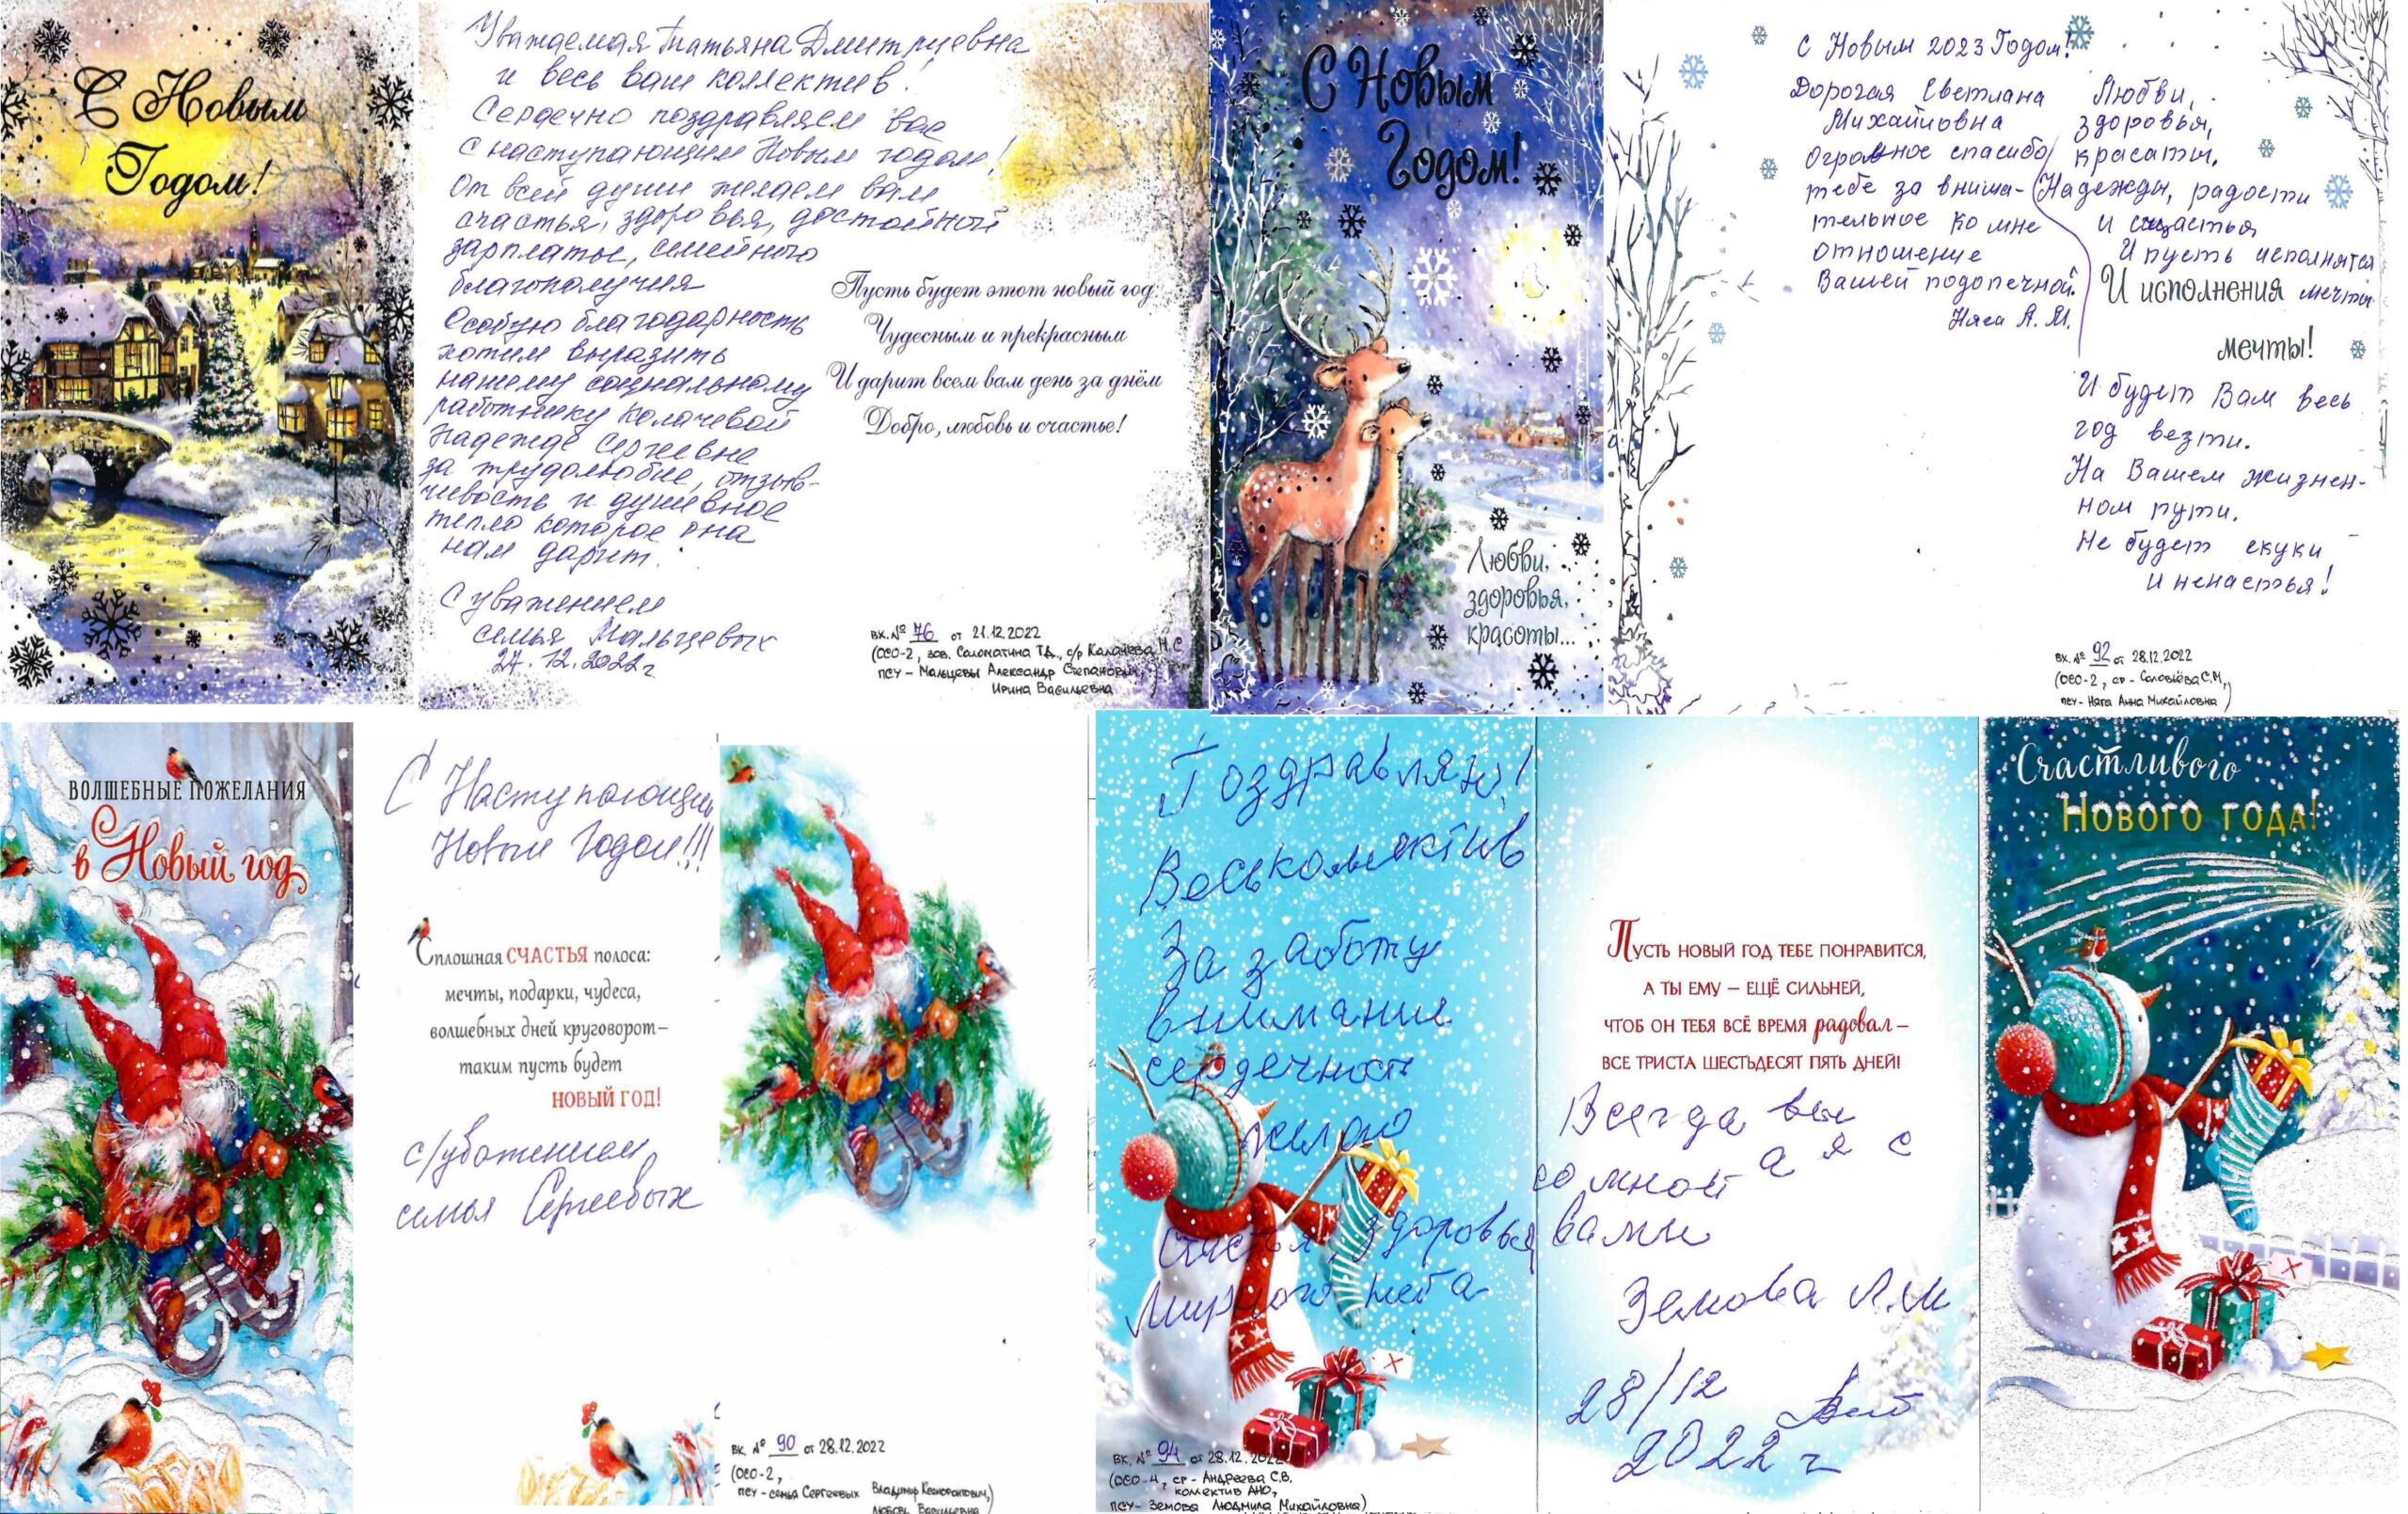 С Новым
Годом!
Уважаемая Татьяна Дмитриевна
и весь ваш коллектив!
Сердечно поздравляем вас
с наступающим Новым годом!
От всей души желаем вам
счастья, здоровья, достойной
зарплаты, семейного
благополучия
Особую благодарность
хотим выразить
нашему социальному
работнику Калачевой
Надежде Сергеевне
за трудолюбие, отзыв-
чивость и душевное
тепло которое она
нам дарит.
С уважением
семья Мальцевых
27.12.2022г
Пусть будет этот новый год
Чудесным и прекрасным
И дарит всем вам день за днём
Добро, любовь и счастье!
вх. № 76 от 21.12.2022
(ОСО-2, зав. Саломатина Т.Д., с/р Калачева Н.С
ПСУ - Мальцевы Александр Степанович,
Ирина Васильевна
С Новым
Годом!
Любви,
здоровья,
красоты...
С Новым 2023 Годом!
Дорогая Светлана
Михайловна
Огромное спасибо
тебе за внима-
тельное ко мне
отношение
Вашей подопечной.
Няга А. М.
Любви,
здоровья,
красоты.
Надежды, радости
и счастья
И пусть исполнятся
И исполнения мечты
мечты!
И будет Вам весь
год везти.
На Вашем жизнен-
ном пути.
Не будет скуки
и ненастья!
вх. № 92 от 28.12.2022
(ОСО-2, ср - Соловьёва С.М,
ПСУ - Няга Анна Михайловна)
ВОЛШЕБНЫЕ ПОЖЕЛАНИЯ
в Новый год
С Наступающим
Новым Годом!!!
Сплошная СЧАСТЬЯ полоса:
мечты, подарки, чудеса,
волшебных дней круговорот –
таким пусть будет
НОВЫЙ ГОД!
с/уважением,
семья Сергеевых
вх. № 90 от 28.12.2022
(ОСО-2,
ПСУ - семья Сергеевых Владимир Ксенофонтович,
Любовь Васильевна)
Поздравляю!
Весь колектив
За заботу
внимание
сердечность
желаю
счастья, здоровья
мирного неба
вх. № 94 от 28.12.2022
(ОСО-4, ср - Андреева С.В.
колектив АНО,
ПСУ - Земова Людмила Михайловна)
Пусть новый год тебе понравится,
а ты ему – ещё сильней,
чтоб он тебя всё время радовал –
все триста шестьдесят пять дней!
Всегда вы
со мной а я с
вами
Земова Л.М
28/12
2022 г
Счастливого
Нового года!